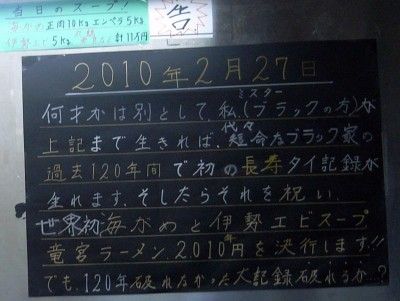 当日のスープ!
海がめの正肉10Kgエンペラ5Kg
伊勢エビ5Kg 計11万円
告
2010年2月27日
ミスター
何才かは別として、私(ブラックの方)が
上記まで生きれば、代々短命なブラック家の
過去120年間で初の長寿タイ記録が
生れます。そしたらそれを祝い、
世界初海がめと伊勢エビスープ
竜宮ラーメン2,010年円を決行します!!
でも、120年破れなかった大記録破れるか?